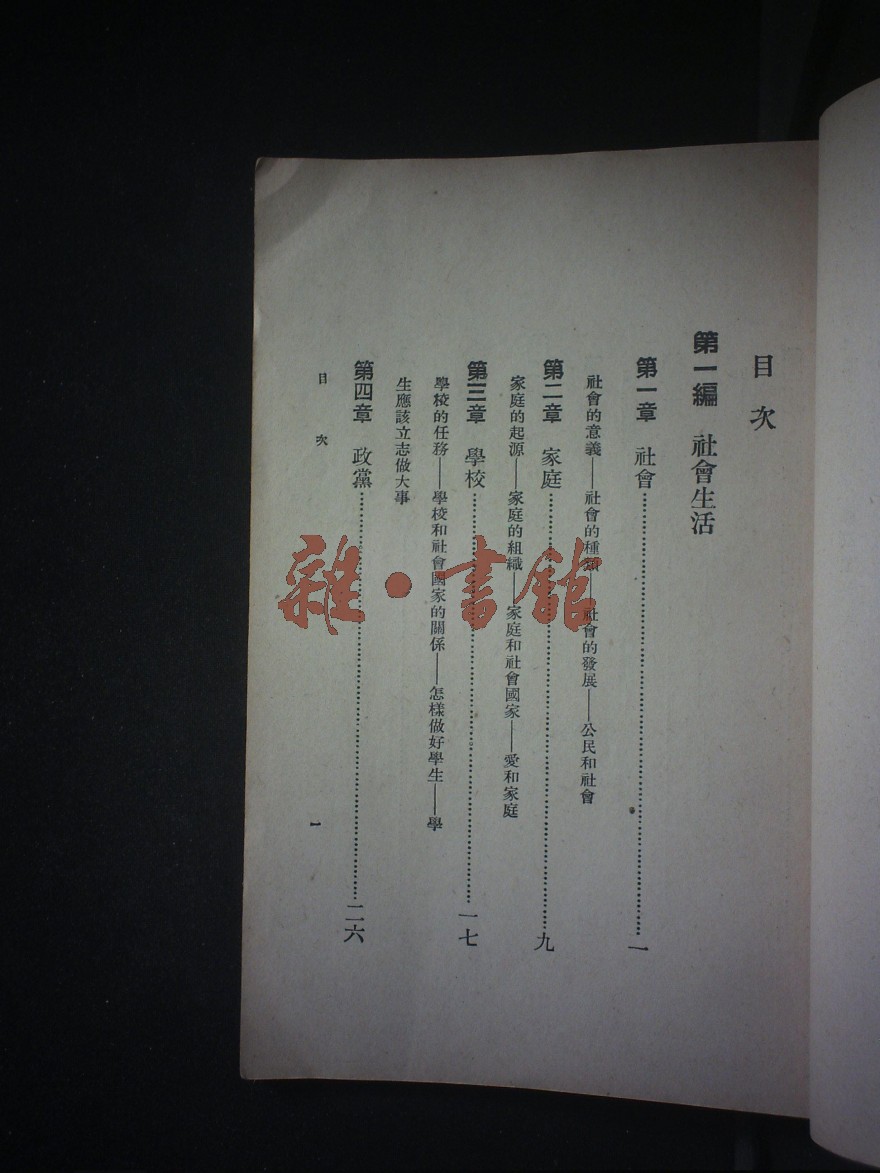 目次
第一編 社會生活
第一章 社會……一
社會的意義——社會的種類——社會的發展——公民和社會
第二章 家庭……九
家庭的起源——家庭的組織——家庭和社會國家——愛和家庭
第三章 學校……一七
學校的任務——學校和社會國家的關係——怎樣做好學生——學
生應該立志做大事
第四章 政黨……二六
目次 一
雜·書館